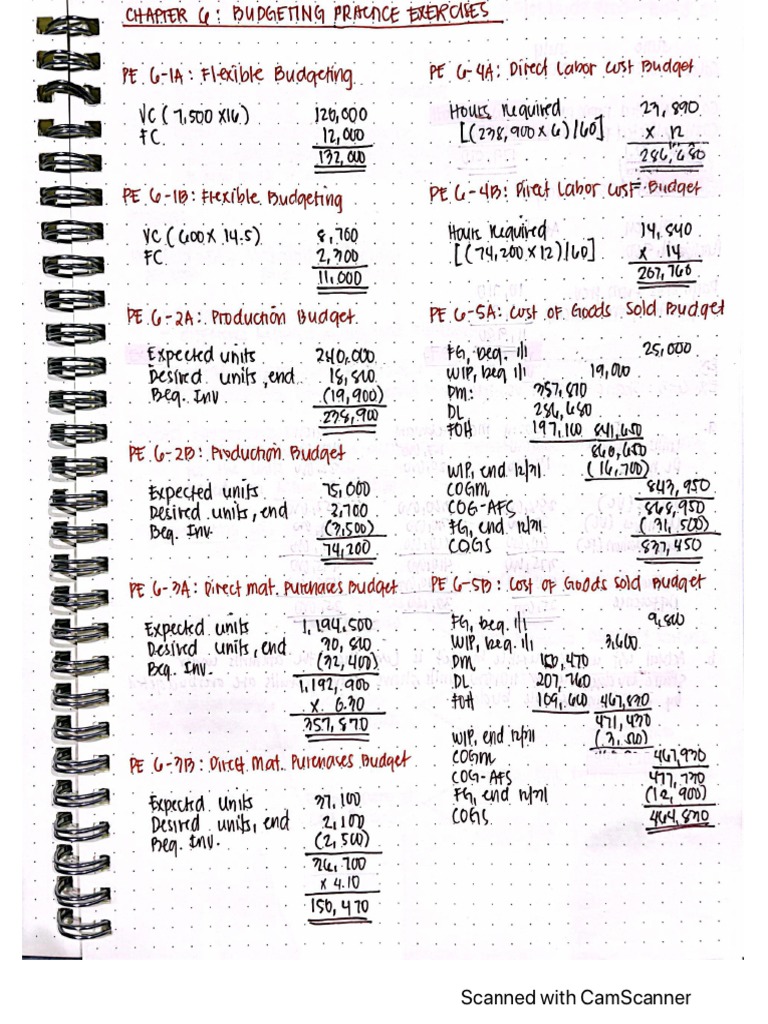 CHAPTER 6: BUDGETING PRACTICE EXERCISES
PE. 6-1A: Flexible Budgeting
VC (7,500 x 16) 120,000
FC. 12,000
132,000
PE 6-1B: Flexible Budgeting
VC (600 x 14.5) 8,700
FC. 2,300
11,000
PE. 6-2A: Production Budget
Expected units 240,000
Desired units, end 18,800
Beg. Inv (19,900)
238,900
PE. 6-2B: Production Budget
Expected units 75,000
Desired units, end 2,700
Beg. Inv. (3,500)
74,200
PE 6-3A: Direct mat. Purchases Budget
Expected units 1,194,500
Desired units, end 30,800
Beg. Inv. (32,400)
1,192,900
x 0.30
357,870
PE 6-3B: Direct Mat. Purchases Budget
Expected Units 37,100
Desired units, end 2,100
Beg. Inv. (2,500)
36,700
x 4.10
150,470
PE 6-4A: Direct Labor Cost Budget
Hours required 23,890
[(238,900 x 6)/60] x 12
286,680
PE 6-4B: Direct Labor Cost Budget
Hours Required 14,840
[(74,200 x 12)/60] x 14
207,760
PE 6-5A: Cost of Goods Sold Budget
FG, beg. 1/1 25,000
WIP, beg 1/1 19,000
DM: 357,870
DL 286,680
FOH 197,100 841,650
860,650
WIP, end 12/31 (16,700)
COGM 843,950
COG-AFS 868,950
FG, end 12/31 (31,500)
COGS 837,450
PE 6-5B: Cost of Goods Sold Budget
FG, beg. 1/1 9,800
WIP, beg. 1/1 3,600
DM 150,470
DL 207,760
FOH 109,600 467,830
471,430
WIP, end 12/31 (3,500)
COGM 467,930
COG-AFS 477,730
FG, end 12/31 (12,900)
COGS 464,830
Scanned with CamScanner